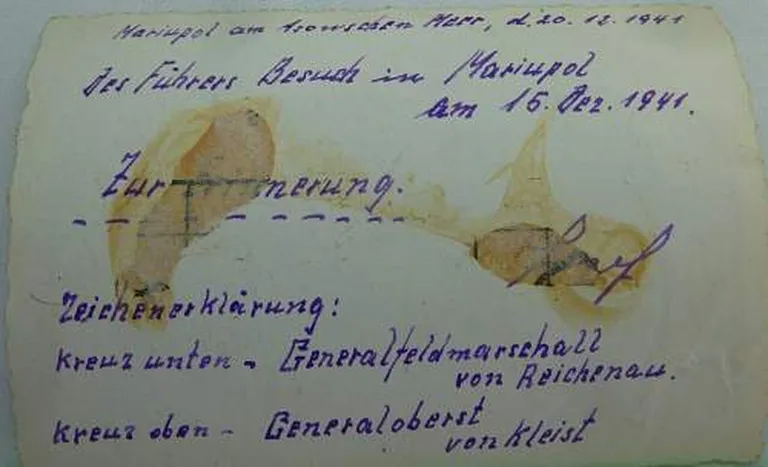 Mariupol am Asowschen Meer, d. 20.12.1941
Des Führers Besuch in Mariupol
am 15. Dez. 1941.
Zur nerung.
Zeichenerklärung:
Kreuz unten - Generalfeldmarschall
von Reichenau.
Kreuz oben - Generaloberst
von Kleist